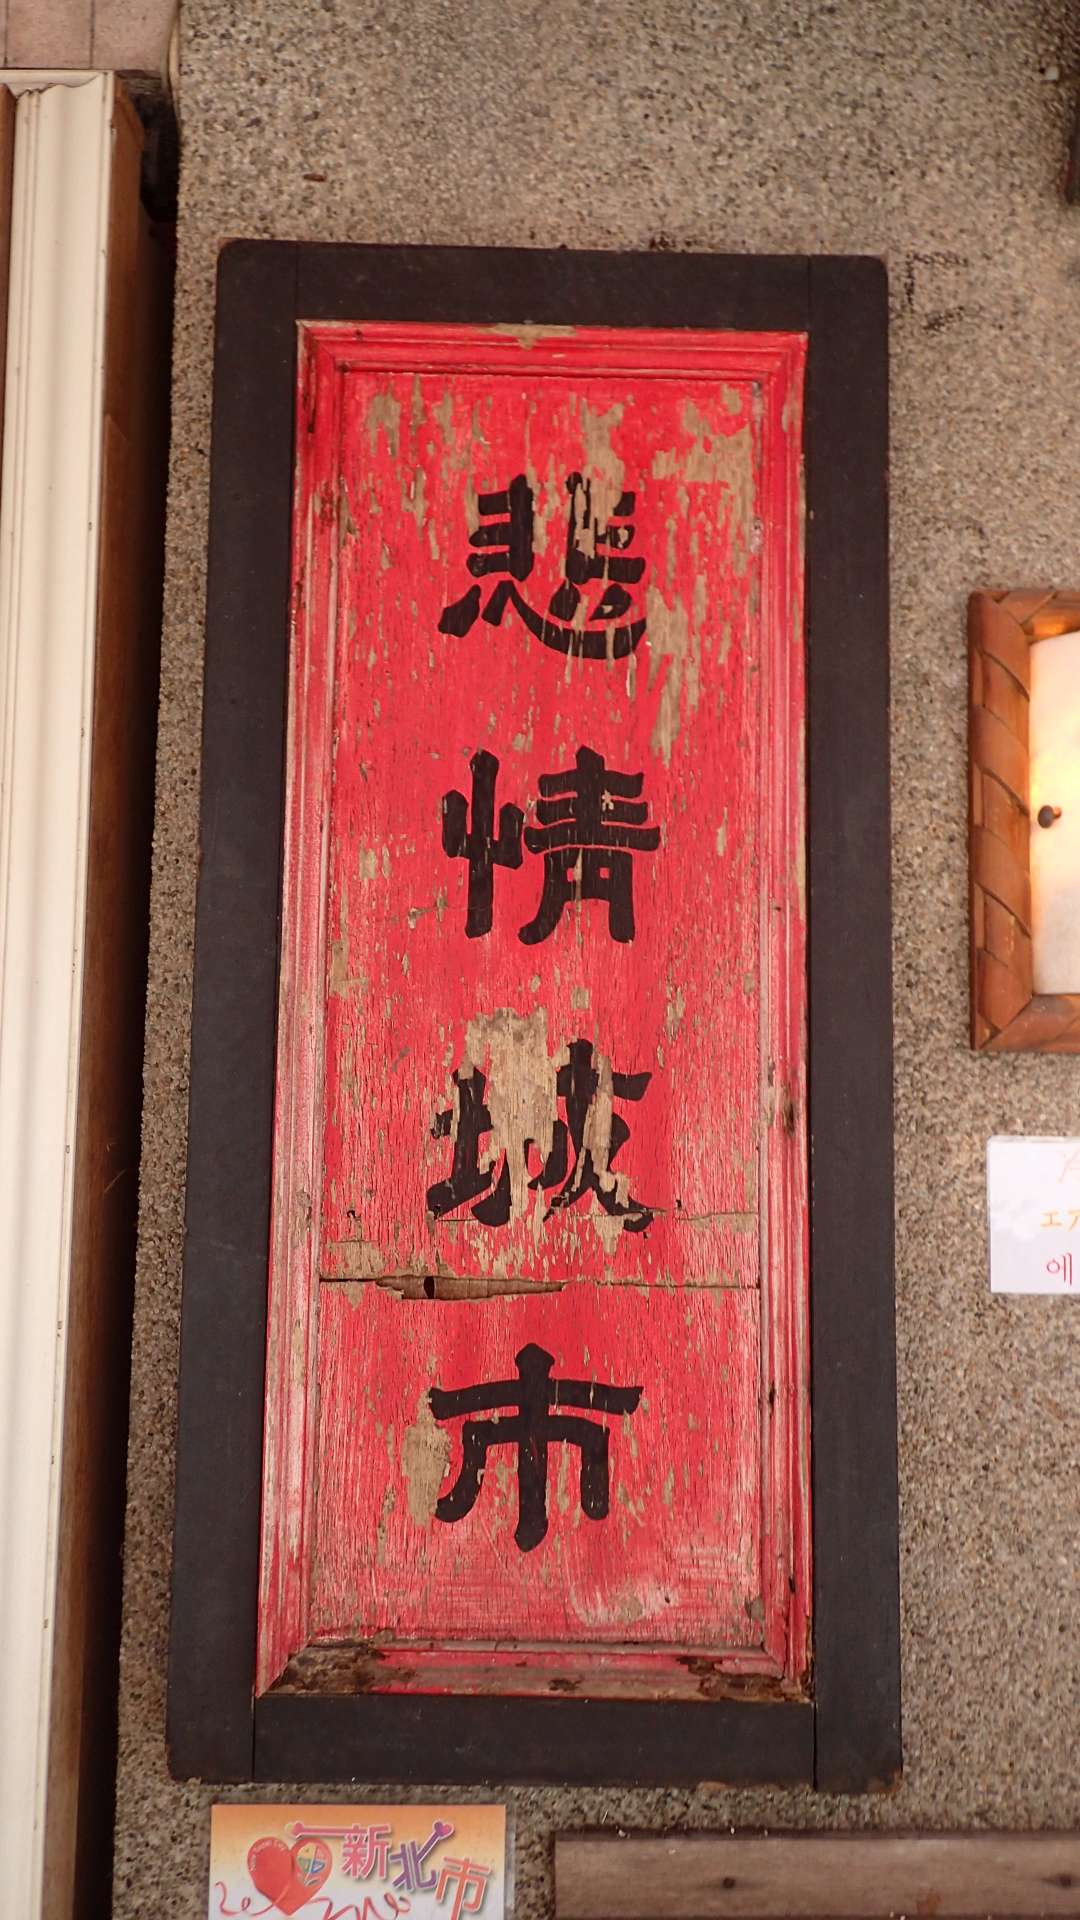 悲情城市
エア
에
新北市